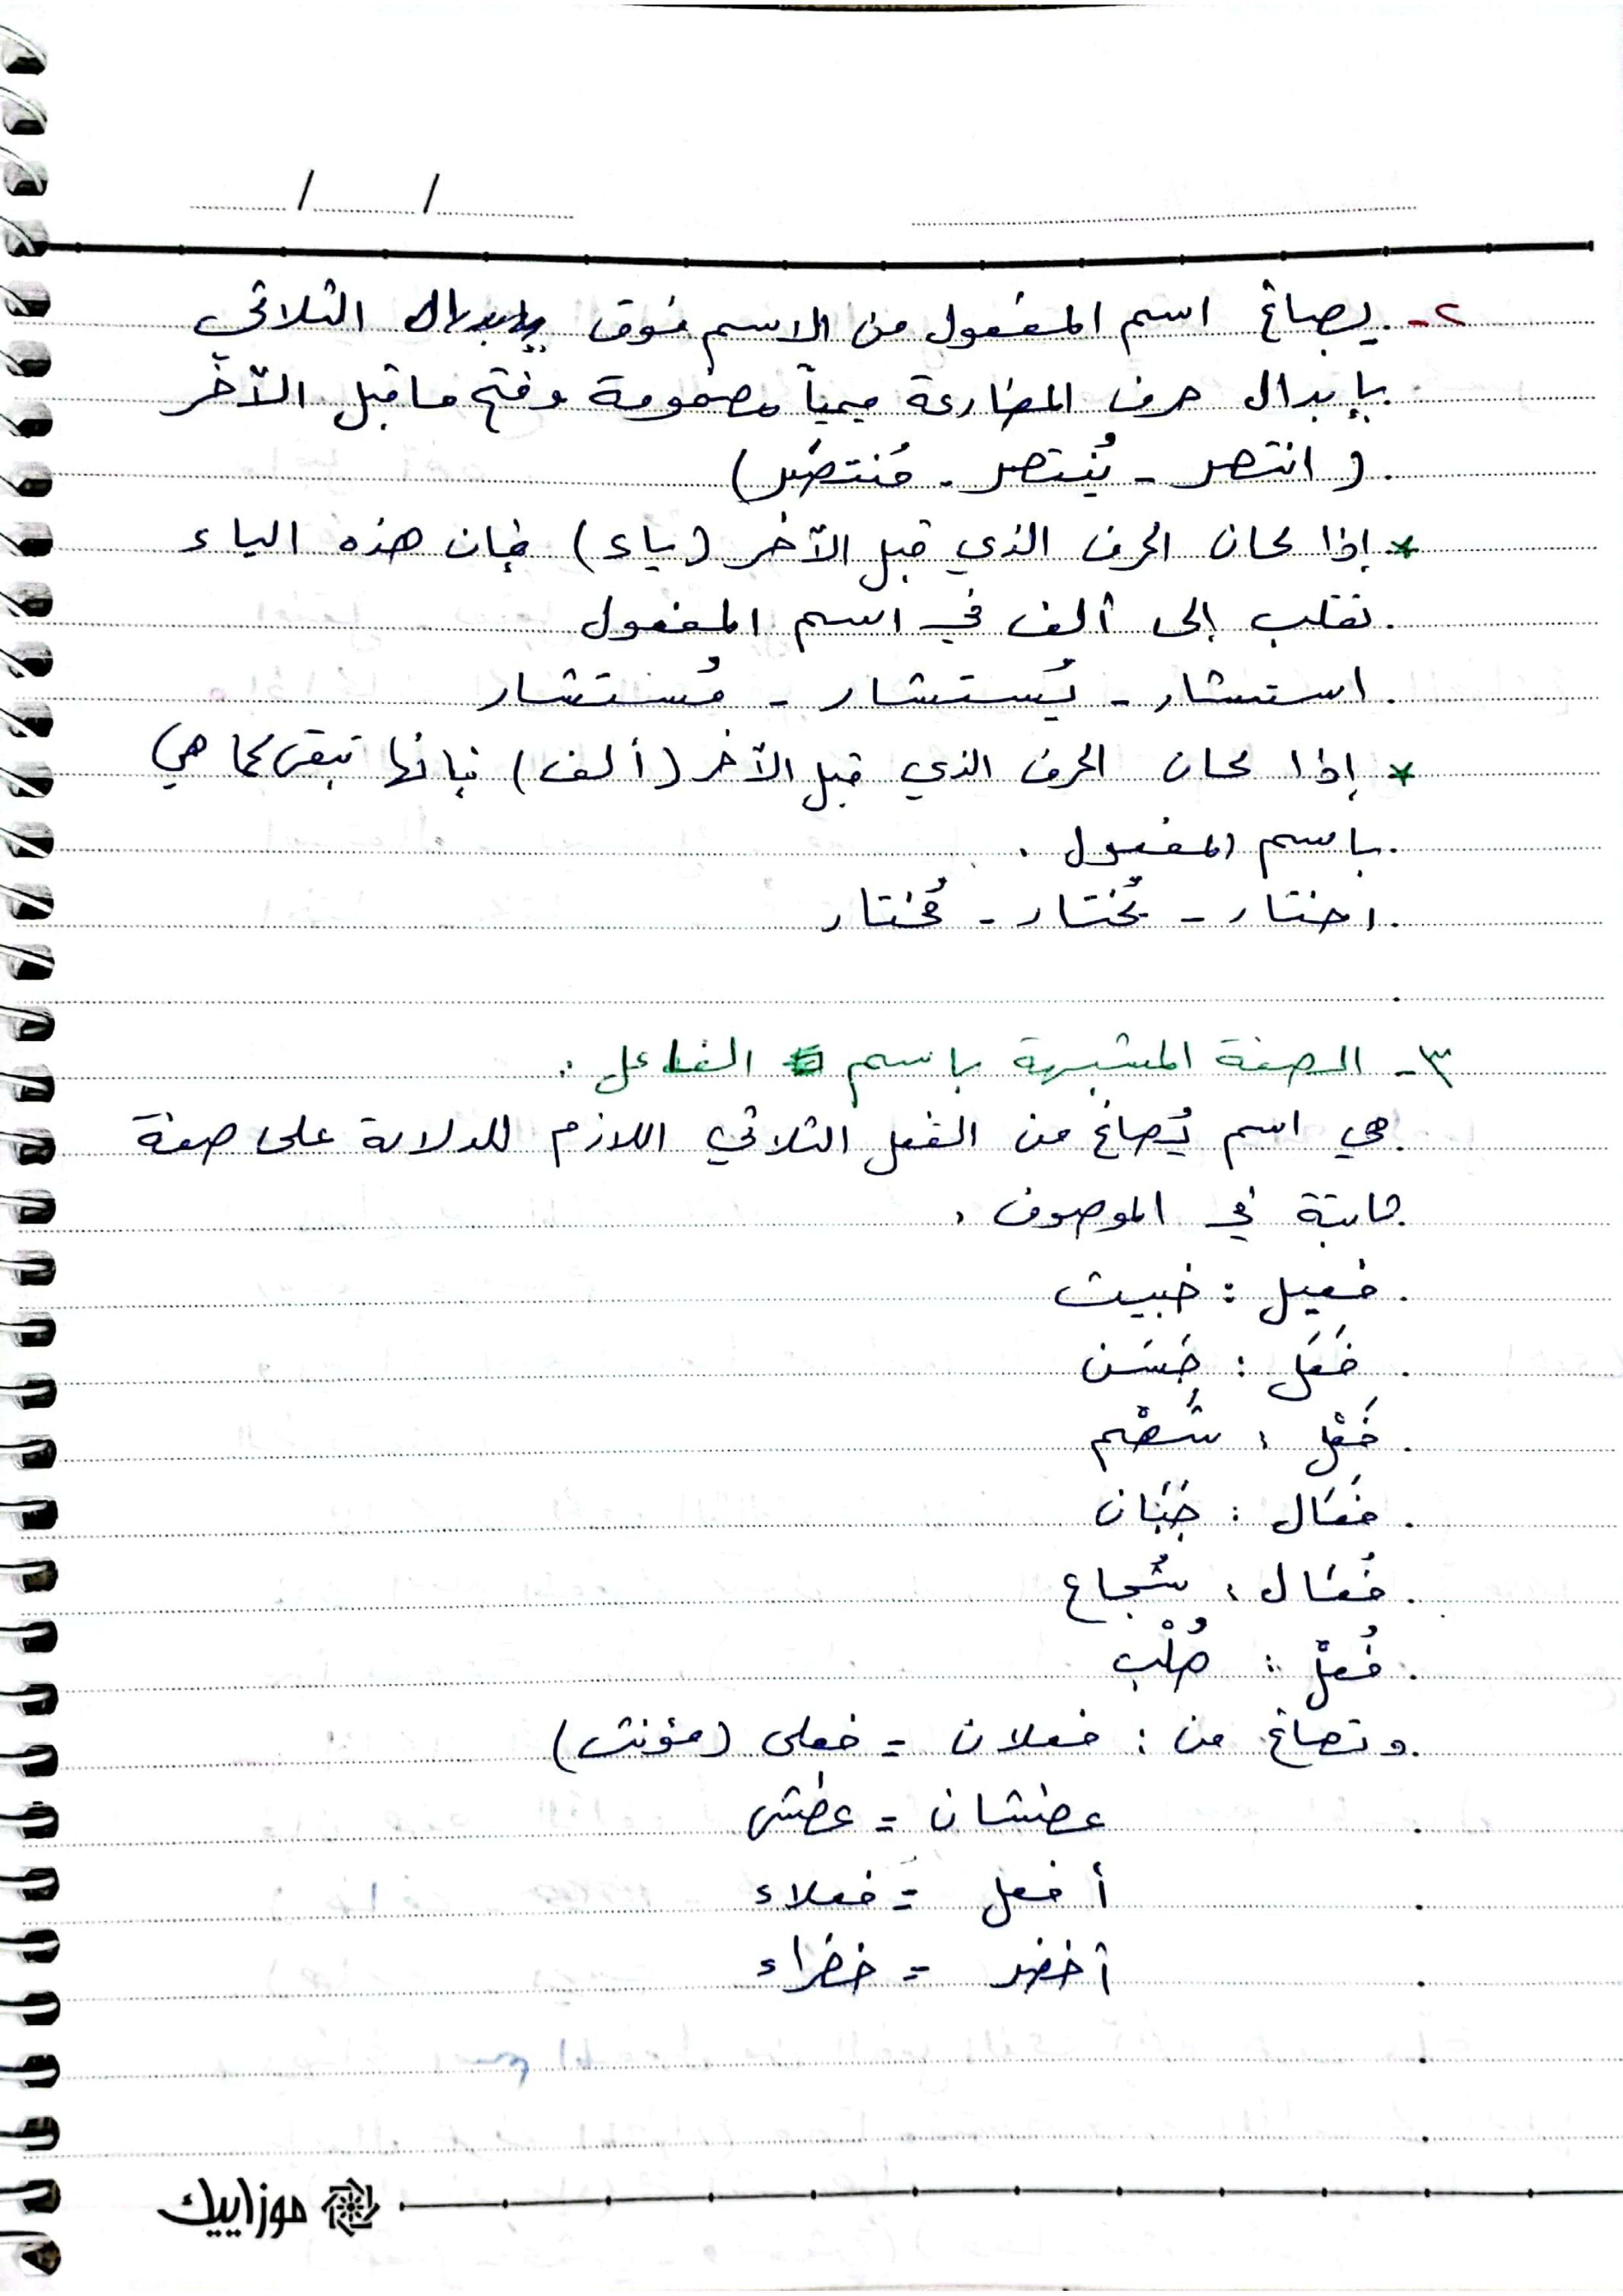 / /
٢- يصاغ اسم المفعول من الاسم فوق الثلاثي
بإبدال حرف المضارعة ميماً مضمومة وفتح ما قبل الآخر
( انتصر - يُنتصر - مُنتصَر)
* إذا كان الحرف الذي قبل الآخر (ياء) فإن هذه الياء
تقلب إلى ألف في اسم المفعول
استشار - يُستشار - مُستشار
* إذا كان الحرف الذي قبل الآخر (ألف) فإنها تبقى كما هي
باسم المفعول .
اختار - يُختار - مُختار
٣- الصفة المشبهة باسم الفاعل :
هي اسم يُصاغ من الفعل الثلاثي اللازم للدلالة على صفة
ثابتة في الموصوف .
فعيل : خبيث
فَعَل : حَسَن
فَعْل : شَهْم
فَعَال : جَبَان
فُعَال : شُجاع
فُعْل : صُلْب
وتصاغ من : فعلان = فعلى (مؤنث)
عطشان = عطشى
أفعل = فعلاء
أخضر = خضراء
موزاييك